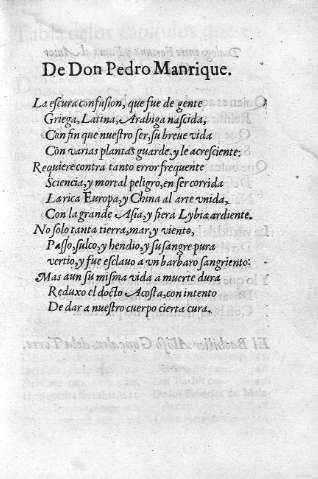 De Don Pedro Manrique.
La escura confusion, que fue de gente
Griega, Latina, Arabiga nascida,
Con fin que nuestro ser, su breve vida
Con varias plantas guarde, y le acresciente:
Requiere contra tanto error frequente
Sciencia, y mortal peligro, en ser corrida
La rica Europa, y China al arte vnida,
Con la grande Asia, y fiera Lybia ardiente.
No solo tanta tierra, mar, y viento,
Passo, sulco, y hendio, y su sangre pura
vertio, y fue esclauo a vn barbaro sangriento:
Mas aun su misma vida a muerte dura
Reduxo el docto Acosta, con intento
De dar a nuestro cuerpo cierta cura.